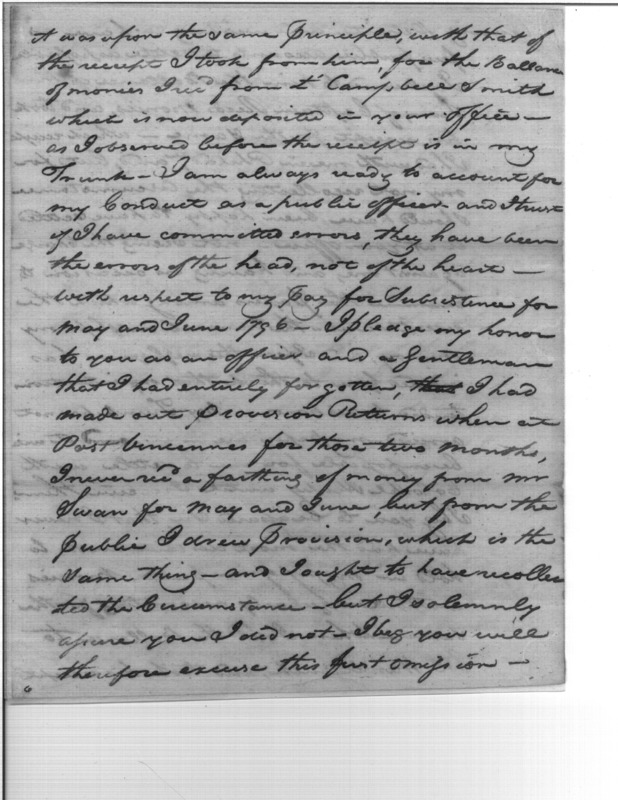 it was upon the same Principle, with that of
the receipt I took from him, for the Ballance
of monies I rec'd from Lt Campbell Smith
which is now deposited in your office —
as I observed before the receipt is in my
Trunk — I am always ready to account for
my Conduct as a public officer and I trust
if I have committed errors, they have been
the errors of the head, not of the heart —
with respect to my Pay for Subsistence for
May and June 1796 — I pledge my honor
to you as an officer and a Gentleman
that I had entirely forgotten, that I had
made out Provision Returns when at
Post Vincennes for those two months,
I never rec'd a farthing of money from mr
Swan for May and June, but from the
Public I drew Provision, which is the
same thing — and I ought to have recollec
ted the Circumstance — but I solemnly
assure you I did not — I beg you will
therefore excuse this first omission —